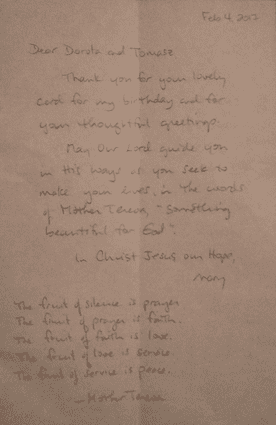 Feb 4, 201
Dear Dorota and Tomasz
Thank you for your lovely
card for my birthday and for
your thoughtful greetings.
May Our Lord guide you
in His ways as you seek to
make your lives, in the words
of Mother Teresa, "something
beautiful for God".
In Christ Jesus our Hope,
The fruit of silence is prayer.
The fruit of prayer is faith.
The fruit of faith is love.
The fruit of love is service.
The fruit of service is peace.
—Mother Teresa